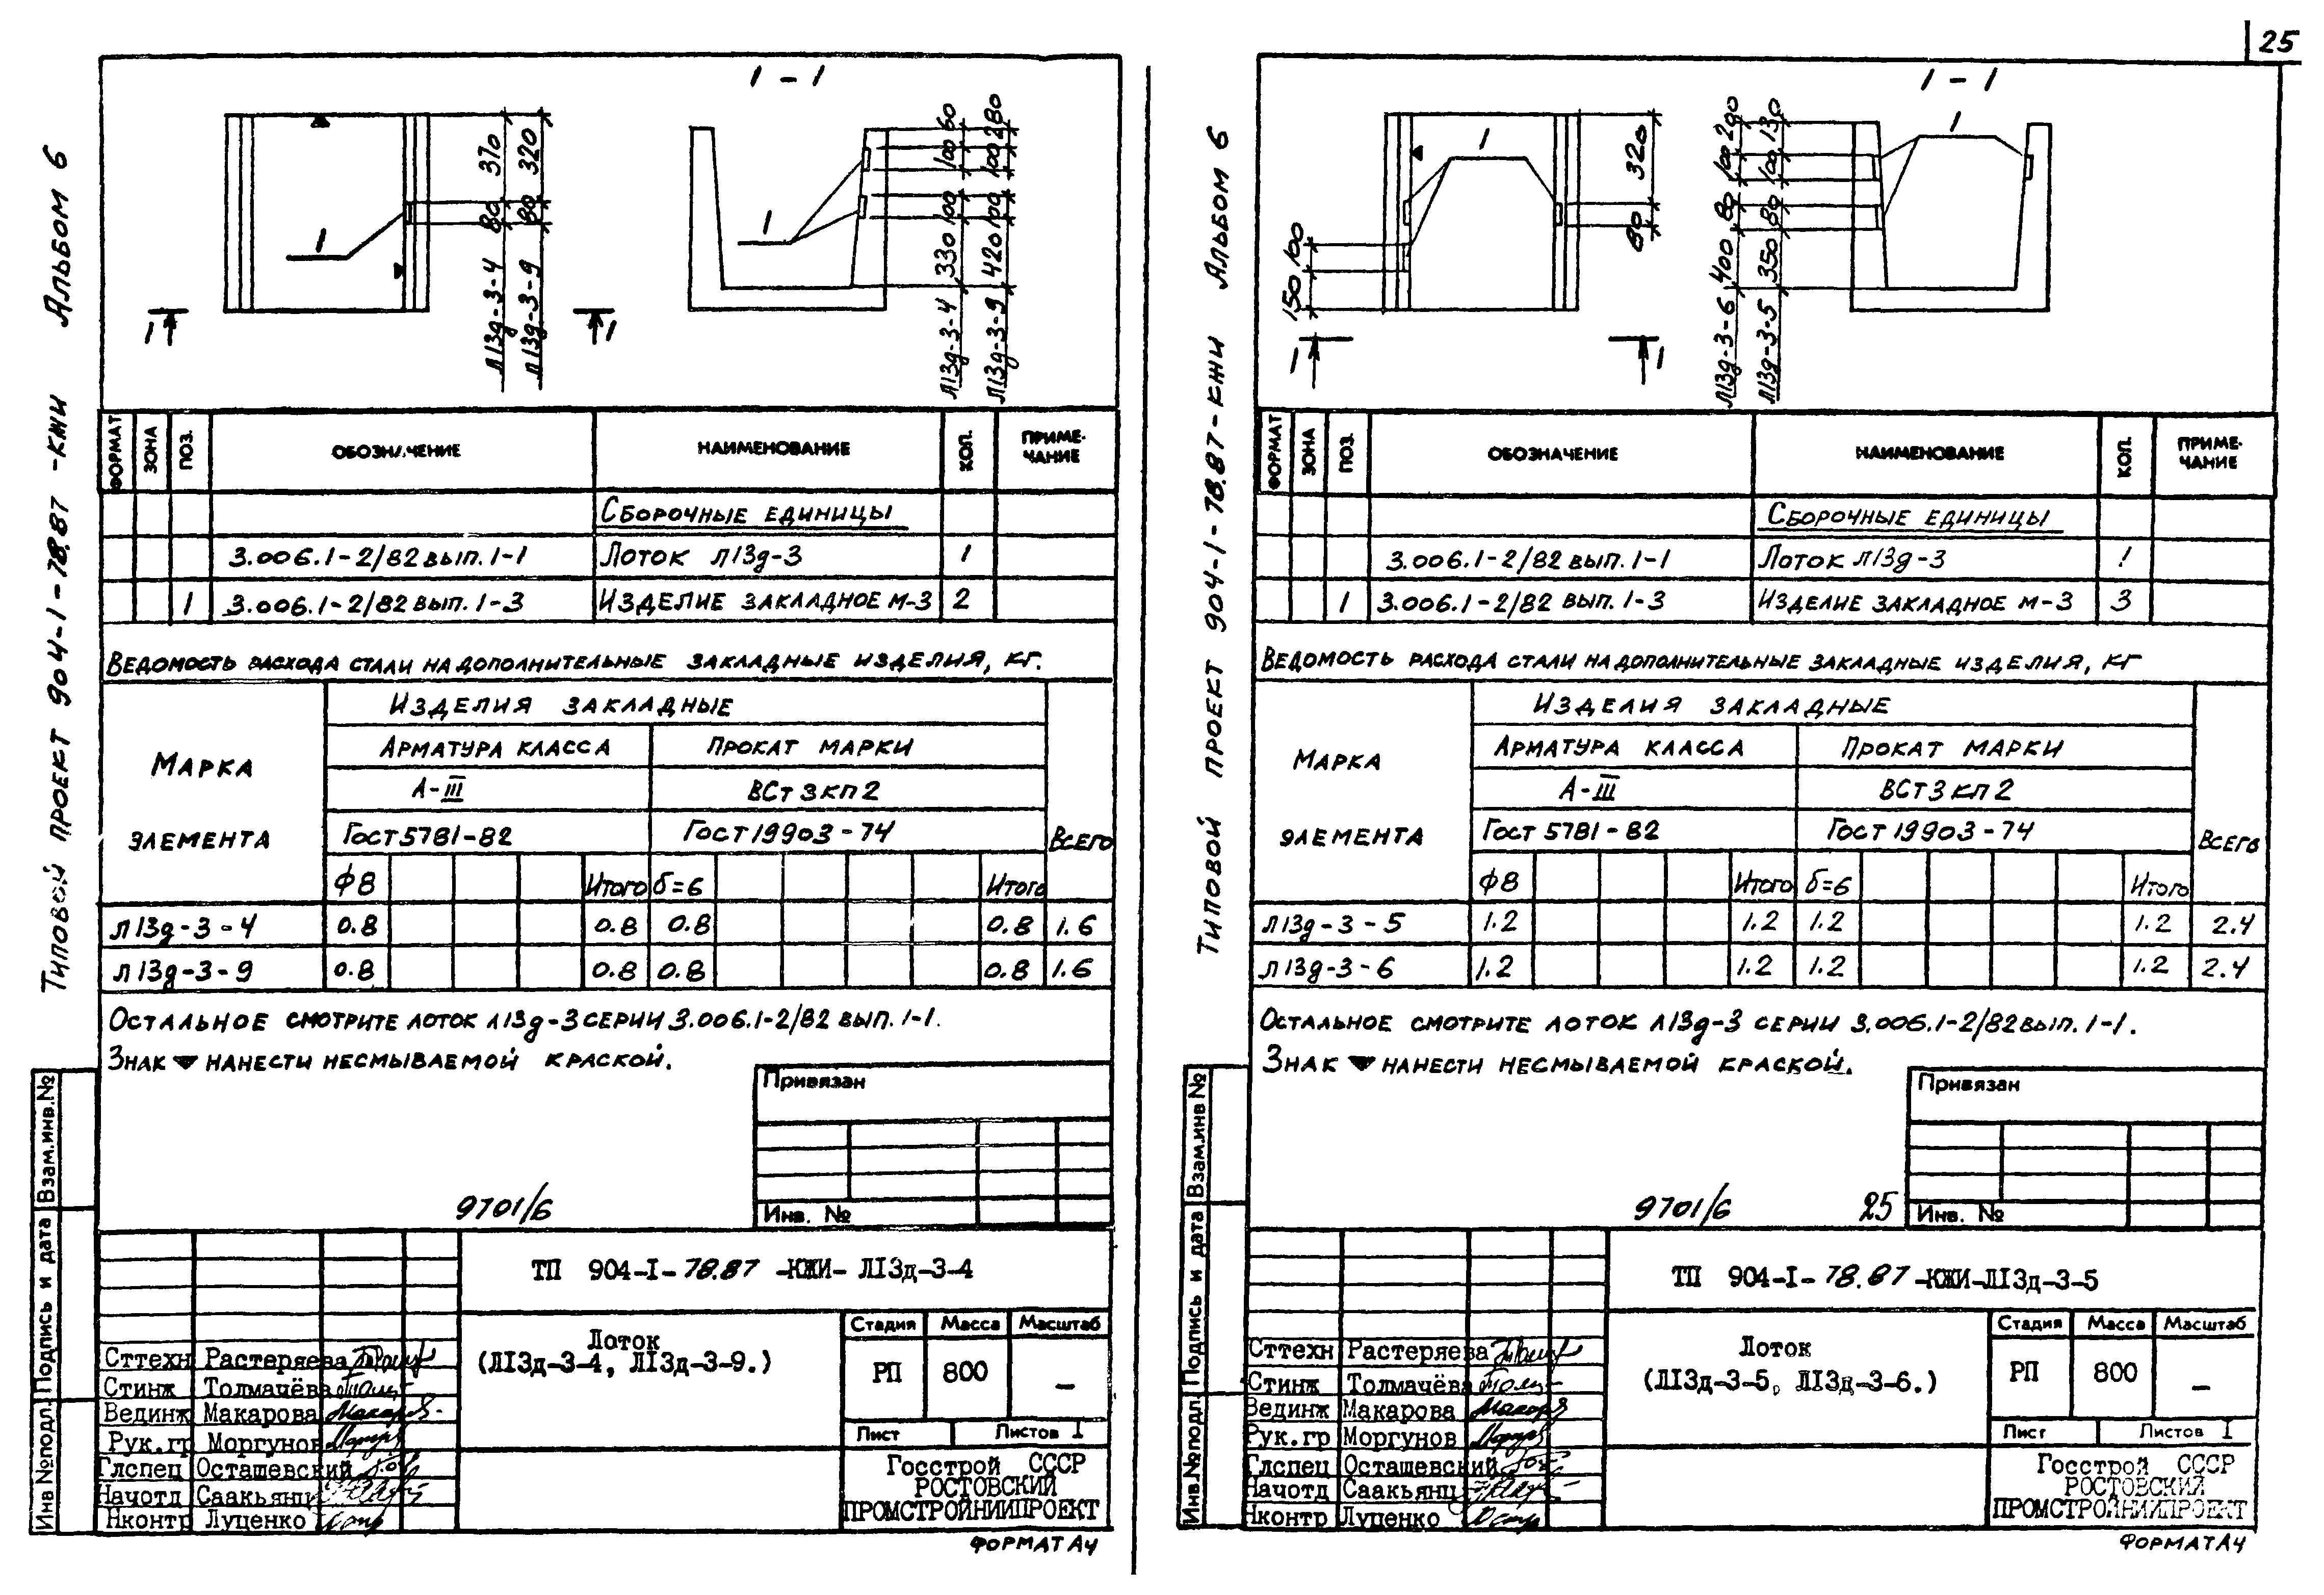 25
Типовой проект 904-1-78.87 -КЖИ Альбом 6
1-1
370
320
80
80
Л13д-3-4
Л13д-3-9
1
1
1
60
280
100
100
100
100
330
420
Л13д-3-4
Л13д-3-9
1
ФОРМАТ ЗОНА ПОЗ. ОБОЗНАЧЕНИЕ НАИМЕНОВАНИЕ КОЛ. ПРИМЕ-
ЧАНИЕ
Сборочные единицы
3.006.1-2/82 вып. 1-1 Лоток Л13д-3 1
1 3.006.1-2/82 вып. 1-3 Изделие закладное М-3 2
Ведомость расхода стали на дополнительные закладные изделия, кг.
Марка
элемента
Изделия закладные
Арматура класса Прокат марки
А-III ВСт3кп2
Гост 5781-82 Гост 19903-74 Всего
Ф8 Итого б=6 Итого
Л13д-3-4 0.8 0.8 0.8 0.8 1.6
Л13д-3-9 0.8 0.8 0.8 0.8 1.6
Остальное смотрите лоток Л13д-3 серии 3.006.1-2/82 вып. 1-1.
Знак нанести несмываемой краской.
Привязан
Инв. №
9701/6
ТП 904-I-78.87 -КЖИ- Л13д-3-4
Лоток
(Л13д-3-4, Л13д-3-9.)
Стадия Масса Масштаб
РП 800 –
Лист Листов I
Госстрой СССР
РОСТОВСКИЙ
ПРОМСТРОЙНИИПРОЕКТ
Сттехн Растеряева
Стинж Толмачёва
Вединж Макарова
Рук.гр Моргунов
Глспец Осташевский
Начотд Саакьянц
Нконтр Луценко
Инв №подл. Подпись и дата Взам.инв.№
ФОРМАТ А4
Типовой проект 904-1-78.87-КЖИ Альбом 6
1-1
1
320
80
100
150
1
1
1
290
130
100
100
80
80
400
350
Л13д-3-6
Л13д-3-5
ФОРМАТ ЗОНА ПОЗ. ОБОЗНАЧЕНИЕ НАИМЕНОВАНИЕ КОЛ. ПРИМЕ-
ЧАНИЕ
Сборочные единицы
3.006.1-2/82 вып. 1-1 Лоток Л13д-3 1
1 3.006.1-2/82 вып. 1-3 Изделие закладное М-3 3
Ведомость расхода стали на дополнительные закладные изделия, кг
Марка
элемента
Изделия закладные
Арматура класса Прокат марки
А-III ВСт3кп2
Гост 5781-82 Гост 19903-74 Всего
Ф8 Итого б=6 Итого
Л13д-3-5 1.2 1.2 1.2 1.2 2.4
Л13д-3-6 1.2 1.2 1.2 1.2 2.4
Остальное смотрите лоток Л13д-3 серии 3.006.1-2/82 вып. 1-1.
Знак нанести несмываемой краской.
Привязан
Инв. №
9701/6 25
ТП 904-I-78.87-КЖИ-Л13д-3-5
Лоток
(Л13д-3-5, Л13д-3-6.)
Стадия Масса Масштаб
РП 800 –
Лист Листов I
Госстрой СССР
РОСТОВСКИЙ
ПРОМСТРОЙНИИПРОЕКТ
Сттехн Растеряева
Стинж Толмачёва
Вединж Макарова
Рук.гр Моргунов
Глспец Осташевский
Начотд Саакьянц
Нконтр Луценко
Инв.№подл. Подпись и дата Взам.инв №
ФОРМАТ А4